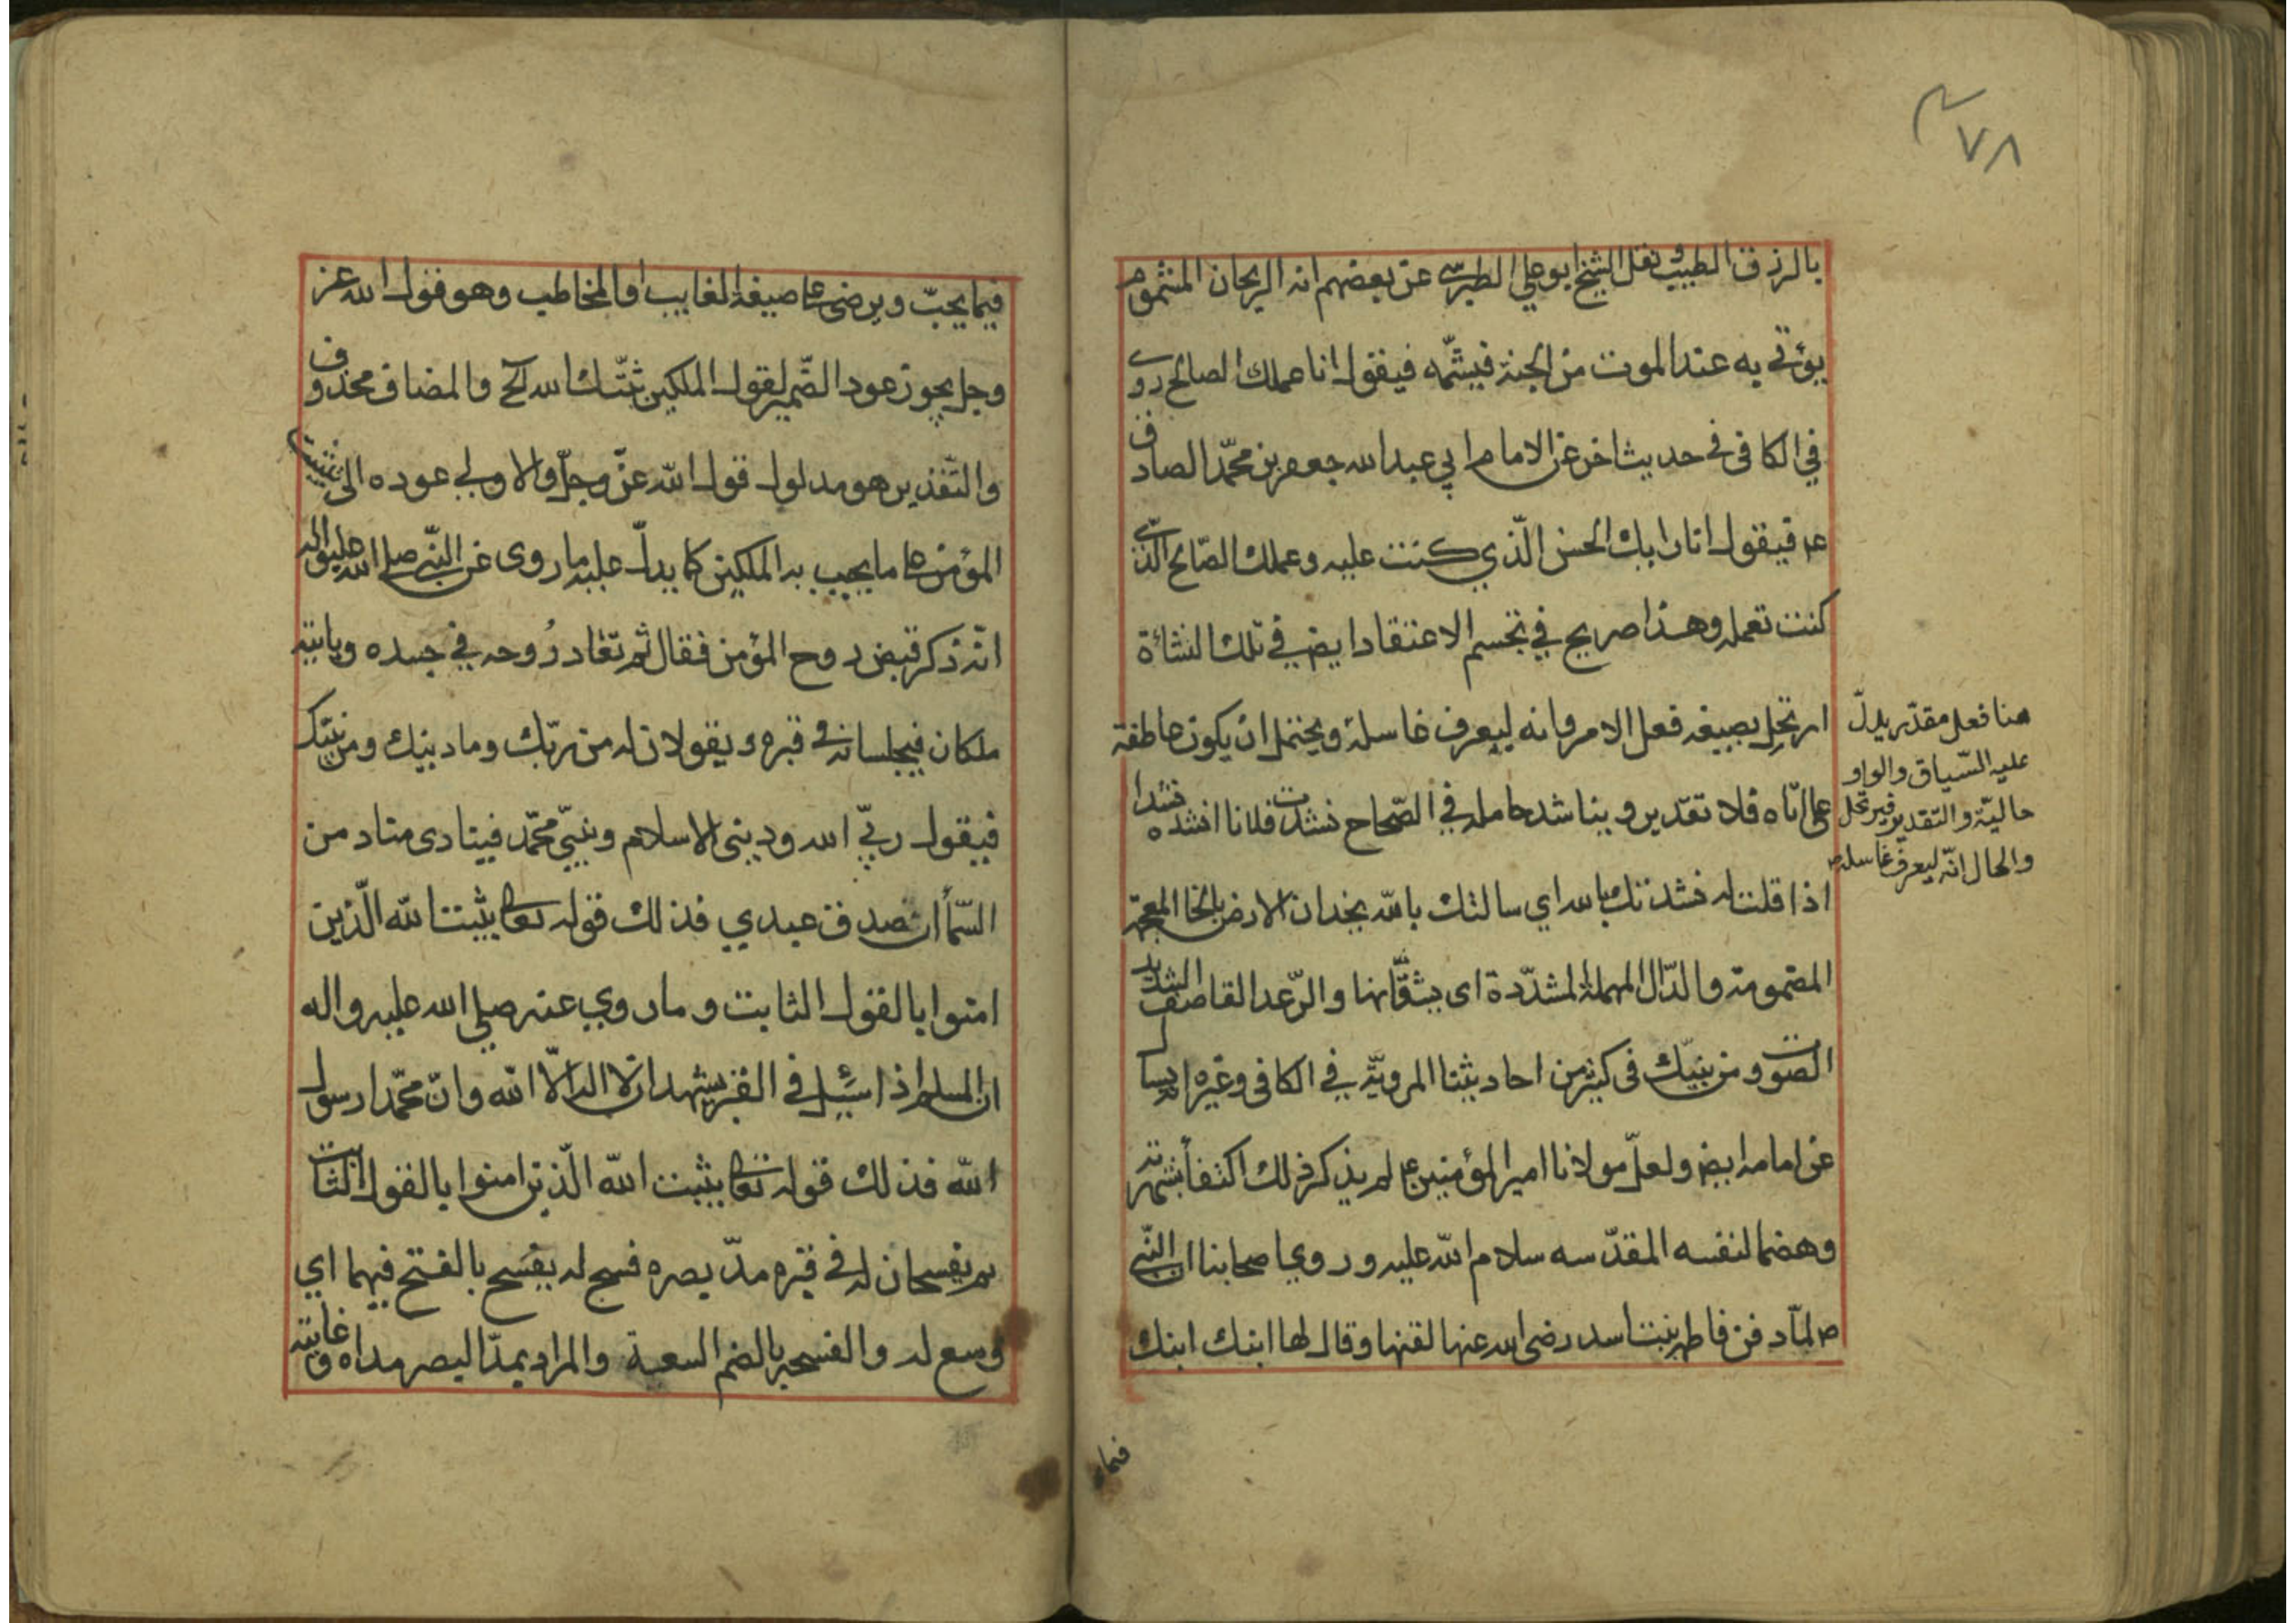 ٧٨
بالرزق الطيب ونقل الشيخ ابو علي الطبرسي عن بعضهم انه الريحان المشموم
يؤتى به عند الموت من الجنة فيشمّه فيقول انا عملك الصالح روى
في الكافى فى حديث اخر عن الامام ابي عبد الله جعفر بن محمّد الصادق
عم فيقول انا رايك الحسن الّذي كنت عليه وعملك الصّالح الّذي
كنت تعمله وهذا صريح في تجسم الاعتقاد ايض في تلك النشأة
ارتحل بصيغه فعل الامر وانه ليعرف غاسله ويحتمل ان يكون عاطفة
على ايّاه فلا تقدير ويناشد حامله في الصّحاح نشدت فلانا انشده نشدا
اذا قلت له نشدتك بالله اي سالتك بالله يخدان الارض بالخا المعجمة
المضمومة والدّال المهملة المشدّدة اى يشقّانها والرّعد القاصف الشديد
الصّوت ومن نبيّك فى كثير من احاديثنا المرويّة في الكافى وغيره
عن امامه ايض ولعلّ مولانا امير المؤمنين عم لم يذكر ذلك اكتفأ بشهرته
وهضما لنفسه المقدّسه سلام الله عليه وروي اصحابنا ان النّبي
ص لمّا دفن فاطمة بنت اسد رضى الله عنها لقنها وقال لها ابنك ابنك
هنا فعل مقدّر يدلّ
عليه السّياق والواو
حاليّة والتّقدير فيرتحل
والحال انّه ليعرف غاسله
فيما
فيما يحبّ ويرضى على صيغة الغايب او المخاطب وهو قول الله عز
وجل يجوز عود الضّمير لقول الملكين ثبّتك الله الخ والمضاف محذوف
والتّقدير هو مدلول قول الله عزّ وجلّ والاولى عوده الى تثبيت
المؤمن على ما يجيب به الملكين كما يدلّ عليه ما روى عن النّبي صلى الله عليه واله
انّه ذكر قبض روح المؤمن فقال ثم تعاد رُوحه في جسده وياتيه
ملكان فيجلسانه فى قبره ويقولان له من ربّك وما دينك ومن نبيّك
فيقول ربّي الله ودينى الاسلام ونبيّي محمّد فينادى مناد من
السّمأ ان صدق عبدي فذلك قوله تعالى يثبت الله الّذين
امنوا بالقول الثابت وما روي عنه صلى الله عليه واله
ان المسلم اذا سئل في القبر يشهد ان لا اله الّا الله وانّ محمّدا رسول
الله فذلك قوله تعالى يثبت الله الّذين امنوا بالقول الثابت
ثم يفسحان له في قبره مدّ بصره فسح له يفسَح بالفتح فيهما اي
وسع له والفسحة بالضم السعة والمراد بمدّ البصر مداه وغايته